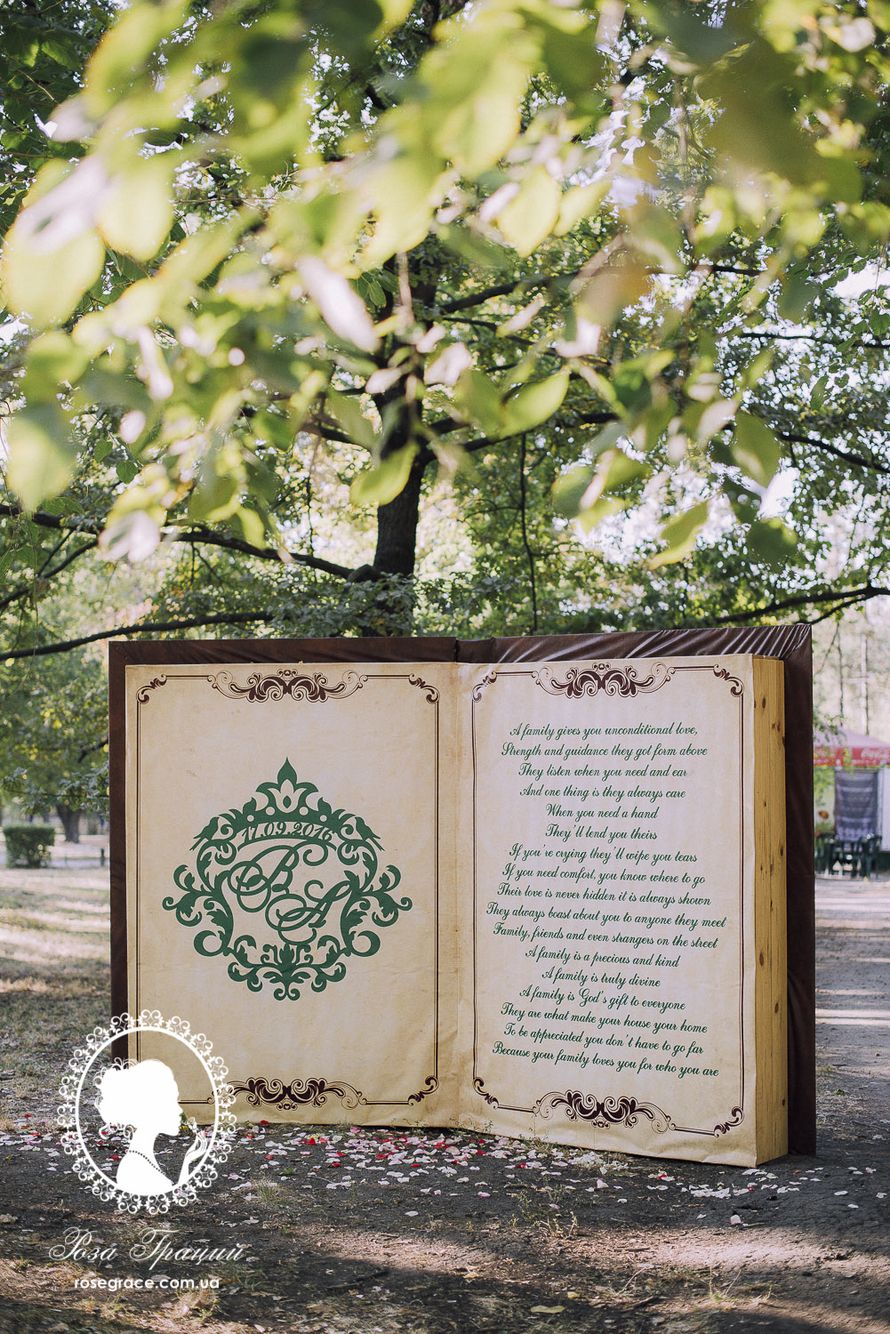 17.09.2016
B
A
A family gives you unconditional love,
Strength and guidance they got form above
They listen when you need and ear
And one thing is they always care
When you need a hand
They'll lend you theirs
If you're crying they'll wipe you tears
If you need comfort, you know where to go
Their love is never hidden it is always shown
They always boast about you to anyone they meet
Family, friends and even strangers on the street
A family is a precious and kind
A family is truly divine
A family is God's gift to everyone
They are what make your house your home
To be appreciated you don't have to go far
Because your family loves you for who you are
Роза Граций
rosegrace.com.ua